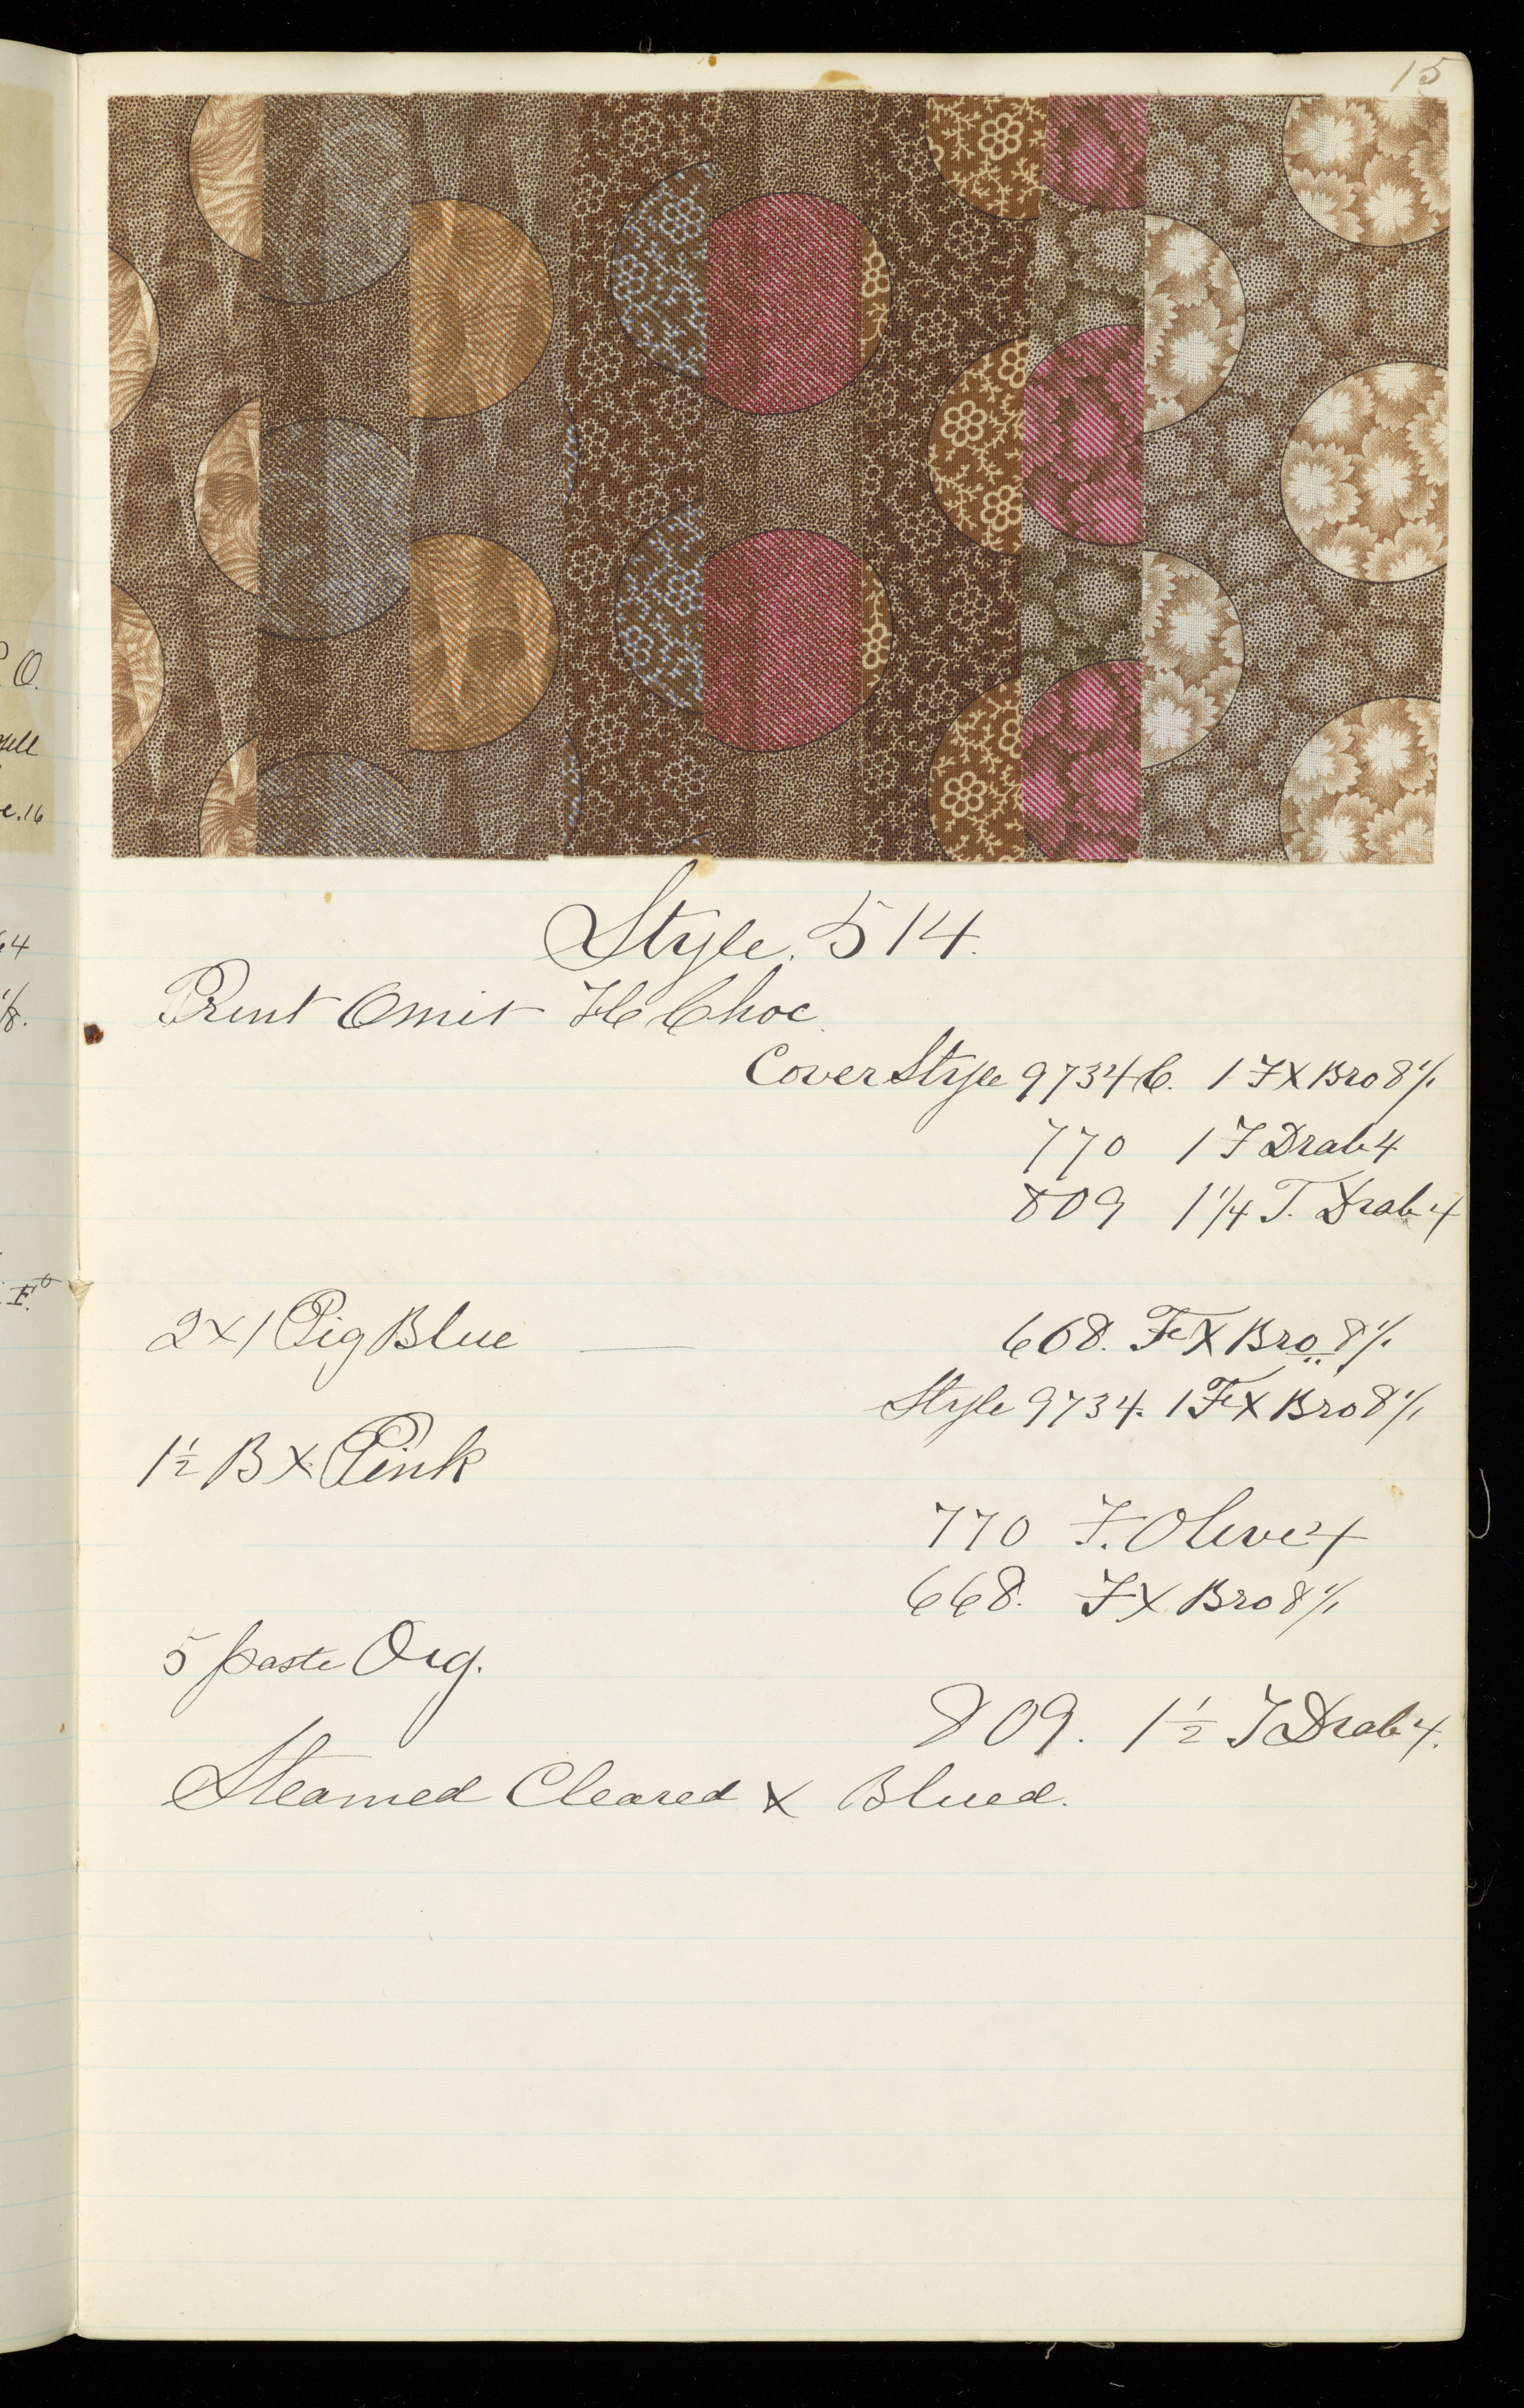 15
Style. 514.
Print Omit Choc.
Cover Style 9734 C. 1 FX Bro 8%
770 1 F Drab 4
809 1 1/4 F. Drab 4
2 x 1 Pig Blue — 668. FeX Bro 8%
Style 9734. 1 FeX Bro 8%
1 1/2 B x Pink
770 F. Olive 4
668. FX Bro 8%
5 paste Org.
809. 1 1/2 F Drab 4.
Steamed Cleared x Blued.
O.
c. 16
64
1/8.
F.